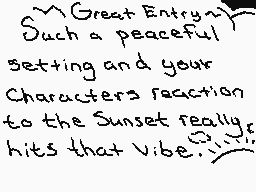 Great Entry~
Such a peaceful
setting and your
characters reaction
to the Sunset really
hits that vibe.